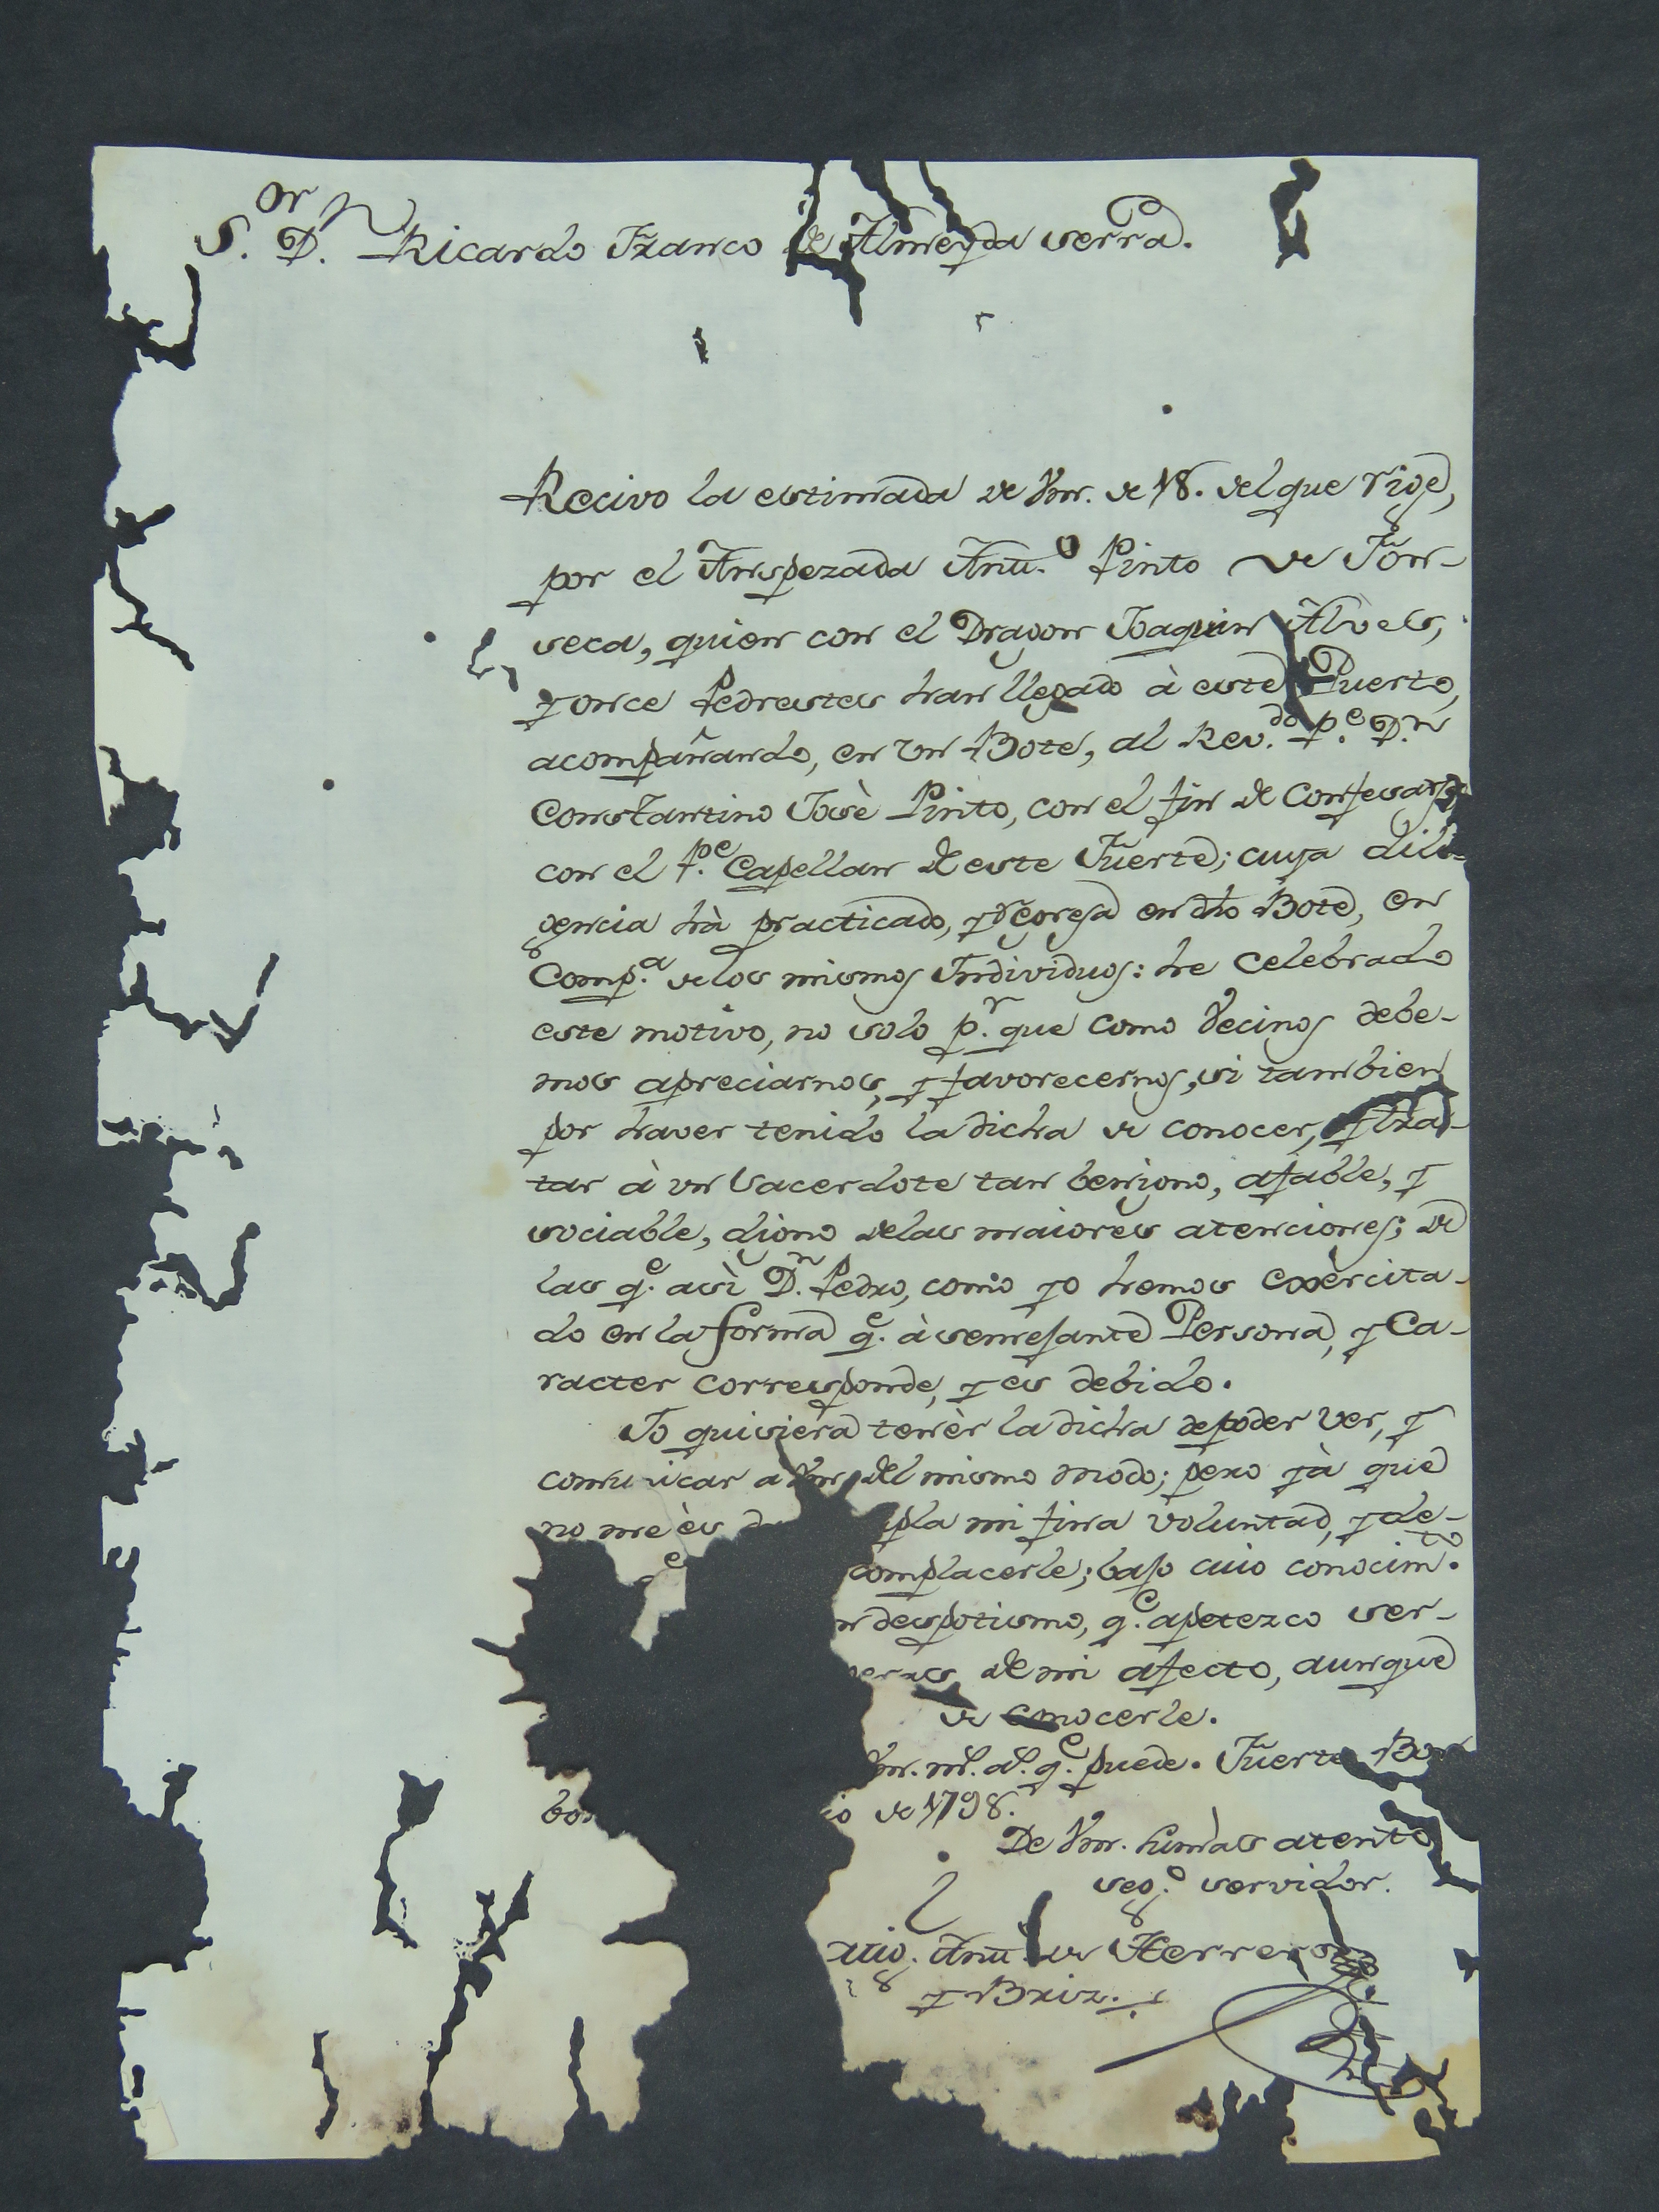 S.or D.n Ricardo Franco de Almeyda Serra.
Recivo la estimada de Vm. de 18. del que rige,
por el Anspezada Ant.o Pinto de Fon-
seca, quien con el Dragon Joaquin Alves,
y once Pedrestes han llegado à este Puerto,
acompañando, en un Bote, al Rev.do P.e D.n
Constantino Josè Pinto, con el fin de Confesarse
con el P.e Capellan de este Fuerte; cuya dili-
gencia hà practicado, y regresa en dho Bote, en
Comp.a de los mismos Individuos: he celebrado
este motivo, no solo p.r que como Vecinos debe-
mos apreciarnos, y favorecernos, si tambien
por haver tenido la dicha de conocer, y tra-
tar à un Sacerdote tan benigno, afable, y
sociable, digno de las maiores atenciones; de
las q.e asì D.n Pedro, como yo hemos exèrcita-
do en la forma q.e à semejante Persona, y Ca-
racter corresponde, y es debido.
Yo quisiera tenèr la dicha de poder ver, y
comunicar a Vm. del mismo modo; pero yà que
no me ès mi fina voluntad, y de-
complacerle; bajo cuio conocim.to
despotismo, q.e apetezco ser-
de mi afecto, aunque
de conocerle.
Vm. m.s a.s q.e puede. Fuerte Bor
bo io de 1798.
De Vm. su màs atento
seg.o servidor.
Ant.o de Herreros
y Briz.